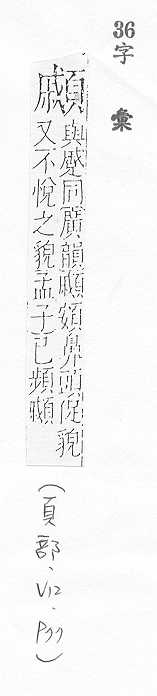 36字　彙
顣
與蹙同廣韻顣頞鼻頭促貌
又不悅之貌孟子已頻顣
(頁部、V12、P77)